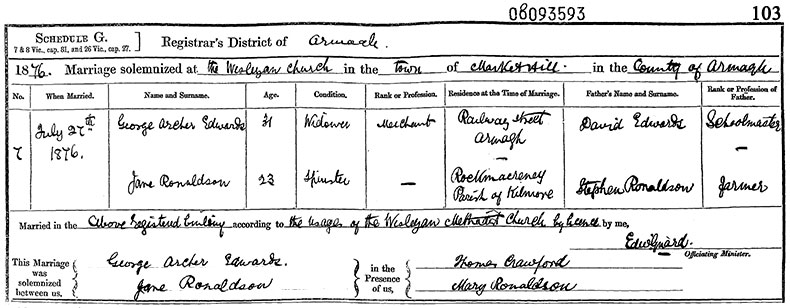 08093593
103
SCHEDULE G.
7 & 8 Vic., cap. 81, and 26 Vic., cap. 27.
Registrar's District of Armagh.
1876. Marriage solemnized at the Wesleyan Church in the town of Markethill. in the County of Armagh
No. When Married. Name and Surname. Age. Condition. Rank or Profession. Residence at the Time of Marriage. Father's Name and Surname. Rank or Profession of Father.
7 July 27th 1876. George Archer Edwards 31 Widower Merchant Railway Street Armagh David Edwards Schoolmaster
Jane Ronaldson 23 Spinster — Rockmacreney Parish of Kilmore Stephen Ronaldson farmer
Married in the Above Registered building according to the usages of the Wesleyan Methodist Church by licence by me,
Officiating Minister.
This Marriage was solemnized between us, George Archer Edwards. Jane Ronaldson
in the Presence of us, Thomas Crawford Mary Ronaldson